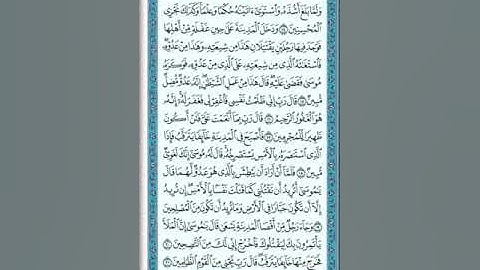 وَلَمَّا بَلَغَ أَشُدَّهُۥ وَٱسْتَوَىٰٓ ءَاتَيْنَٰهُ حُكْمًا وَعِلْمًا وَكَذَٰلِكَ نَجْزِى
ٱلْمُحْسِنِينَ ١٤ وَدَخَلَ ٱلْمَدِينَةَ عَلَىٰ حِينِ غَفْلَةٍ مِّنْ أَهْلِهَا
فَوَجَدَ فِيهَا رَجُلَيْنِ يَقْتَتِلَانِ هَٰذَا مِن شِيعَتِهِۦ وَهَٰذَا مِنْ عَدُوِّهِۦ
فَٱسْتَغَٰثَهُ ٱلَّذِى مِن شِيعَتِهِۦ عَلَى ٱلَّذِى مِنْ عَدُوِّهِۦ فَوَكَزَهُۥ
مُوسَىٰ فَقَضَىٰ عَلَيْهِ قَالَ هَٰذَا مِنْ عَمَلِ ٱلشَّيْطَٰنِ إِنَّهُۥ عَدُوٌّ مُّضِلٌّ
مُّبِينٌ ١٥ قَالَ رَبِّ إِنِّى ظَلَمْتُ نَفْسِى فَٱغْفِرْ لِى فَغَفَرَ لَهُۥٓ إِنَّهُۥ
هُوَ ٱلْغَفُورُ ٱلرَّحِيمُ ١٦ قَالَ رَبِّ بِمَآ أَنْعَمْتَ عَلَىَّ فَلَنْ أَكُونَ
ظَهِيرًا لِّلْمُجْرِمِينَ ١٧ فَأَصْبَحَ فِى ٱلْمَدِينَةِ خَآئِفًا يَتَرَقَّبُ فَإِذَا
ٱلَّذِى ٱسْتَنصَرَهُۥ بِٱلْأَمْسِ يَسْتَصْرِخُهُۥ قَالَ لَهُۥ مُوسَىٰٓ إِنَّكَ لَغَوِىٌّ
مُّبِينٌ ١٨ فَلَمَّآ أَنْ أَرَادَ أَن يَبْطِشَ بِٱلَّذِى هُوَ عَدُوٌّ لَّهُمَا قَالَ
يَٰمُوسَىٰٓ أَتُرِيدُ أَن تَقْتُلَنِى كَمَا قَتَلْتَ نَفْسًۢا بِٱلْأَمْسِ إِن تُرِيدُ
إِلَّآ أَن تَكُونَ جَبَّارًا فِى ٱلْأَرْضِ وَمَا تُرِيدُ أَن تَكُونَ مِنَ ٱلْمُصْلِحِينَ
١٩ وَجَآءَ رَجُلٌ مِّنْ أَقْصَا ٱلْمَدِينَةِ يَسْعَىٰ قَالَ يَٰمُوسَىٰٓ إِنَّ ٱلْمَلَأَ
يَأْتَمِرُونَ بِكَ لِيَقْتُلُوكَ فَٱخْرُجْ إِنِّى لَكَ مِنَ ٱلنَّٰصِحِينَ ٢٠
فَخَرَجَ مِنْهَا خَآئِفًا يَتَرَقَّبُ قَالَ رَبِّ نَجِّنِى مِنَ ٱلْقَوْمِ ٱلظَّٰلِمِينَ ٢١